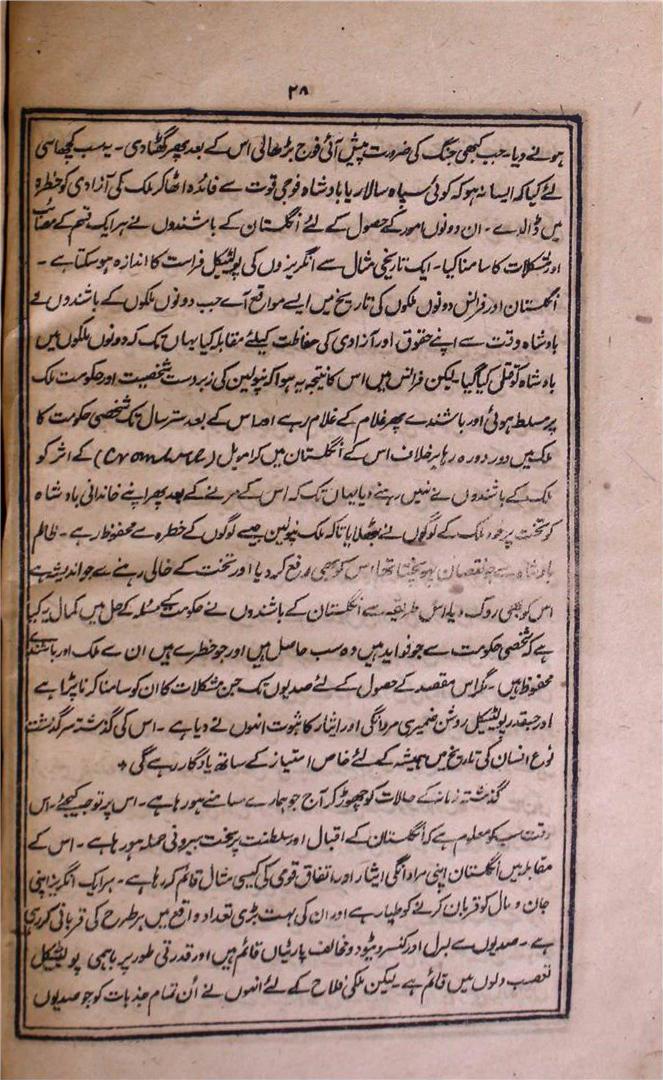 ۲۸
ہونے دیا۔ جب کبھی جنگ کی ضرورت پیش آئی فوج بڑھالی اس کے بعد پھر گھٹا دی۔ یہ سب کچھ اسی
لئے کیا کہ ایسا نہ ہو کہ کوئی سپاہ سالار یا بادشاہ فوجی قوت سے فائدہ اٹھا کر ملک کی آزادی کو خطرہ
میں ڈالدے۔ ان دونوں امور کے حصول کے لئے انگلستان کے باشندوں نے ہر ایک قسم کے مصائب
اور مشکلات کا سامنا کیا۔ ایک تاریخی مثال سے انگریزوں کی پولٹیکل فراست کا اندازہ ہو سکتا ہے۔
انگلستان اور فرانس دونوں ملکوں کی تاریخ میں ایسے مواقع آے جب دونوں ملکوں کے باشندوں نے
بادشاہ وقت سے اپنے حقوق اور آزادی کی حفاظت کیلئے مقابلہ کیا یہاں تک کہ دونوں ملکوں میں
بادشاہ کو قتل کیا گیا۔ لیکن فرانس میں اس کا نتیجہ یہ ہوا کہ نپولین کی زبردست شخصیت اور حکومت ملک
پر مسلط ہوئی اور باشندے پھر غلام کے غلام رہے اور اس کے بعد ستر سال تک شخصی حکومت کا
ملک میں دور دورہ رہا برخلاف اس کے انگلستان میں کرامویل (Cromwel) کے اثر کو
ملک کے باشندوں نے نہیں رہنے دیا یہاں تک کہ اس کے مرنے کے بعد پھر اپنے خاندانی بادشاہ
کو تخت پر خود ملک کے لوگوں نے بٹھلایا تاکہ ملک نپولین جیسے لوگوں کے خطرہ سے محفوظ رہے۔ ظالم
بادشاہ سے جو نقصان پہونچتا تھا اس کو بھی رفع کر دیا اور تخت کے خالی رہنے سے جو اندیشہ ہے
اس کو بھی روک دیا۔ اس طریقہ سے انگلستان کے باشندوں نے حکومت کے مسئلہ کے حل میں کمال یہ کیا
ہے کہ شخصی حکومت سے جو فوائد ہیں وہ سب حاصل ہیں اور جو خطرے ہیں ان سے ملک اور باشندے
محفوظ ہیں۔ مگر اس مقصد کے حصول کے لئے صدیوں تک جن مشکلات کا ان کو سامنا کرنا پڑا ہے
اور جسقدر پولٹیکل روشن ضمیری مردانگی اور ایثار کا ثبوت انہوں نے دیا ہے۔ اس کی گذشتہ سرگذشت
نوع انسان کی تاریخ میں ہمیشہ کے لئے خاص امتیاز کے ساتھ یادگار رہے گی +
گذشتہ زمانہ کے حالات کو چھوڑ کر آج جو ہمارے سامنے ہو رہا ہے۔ اس پر توجہ کیجئے۔ اس
وقت سب کو معلوم ہے کہ انگلستان کے اقبال اور سلطنت پر سخت بیرونی حملہ ہو رہا ہے۔ اس کے
مقابلہ میں انگلستان اپنی مردانگی ایثار اور اتفاق قومی کی کیسی مثال قائم کر رہا ہے۔ ہر ایک انگریز اپنی
جان و مال کو قربان کرنے کو طیار ہے اور ان کی بہت بڑی تعداد واقع میں ہر طرح کی قربانی کر رہی
ہے۔ صدیوں سے لبرل اور کنسرویٹو دو مخالف پارٹیاں قائم ہیں اور قدرتی طور پر باہمی پولٹیکل
تعصب دلوں میں قائم ہے۔ لیکن ملکی فلاح کے لئے انہوں نے اُن تمام جذبات کو جو صدیوں